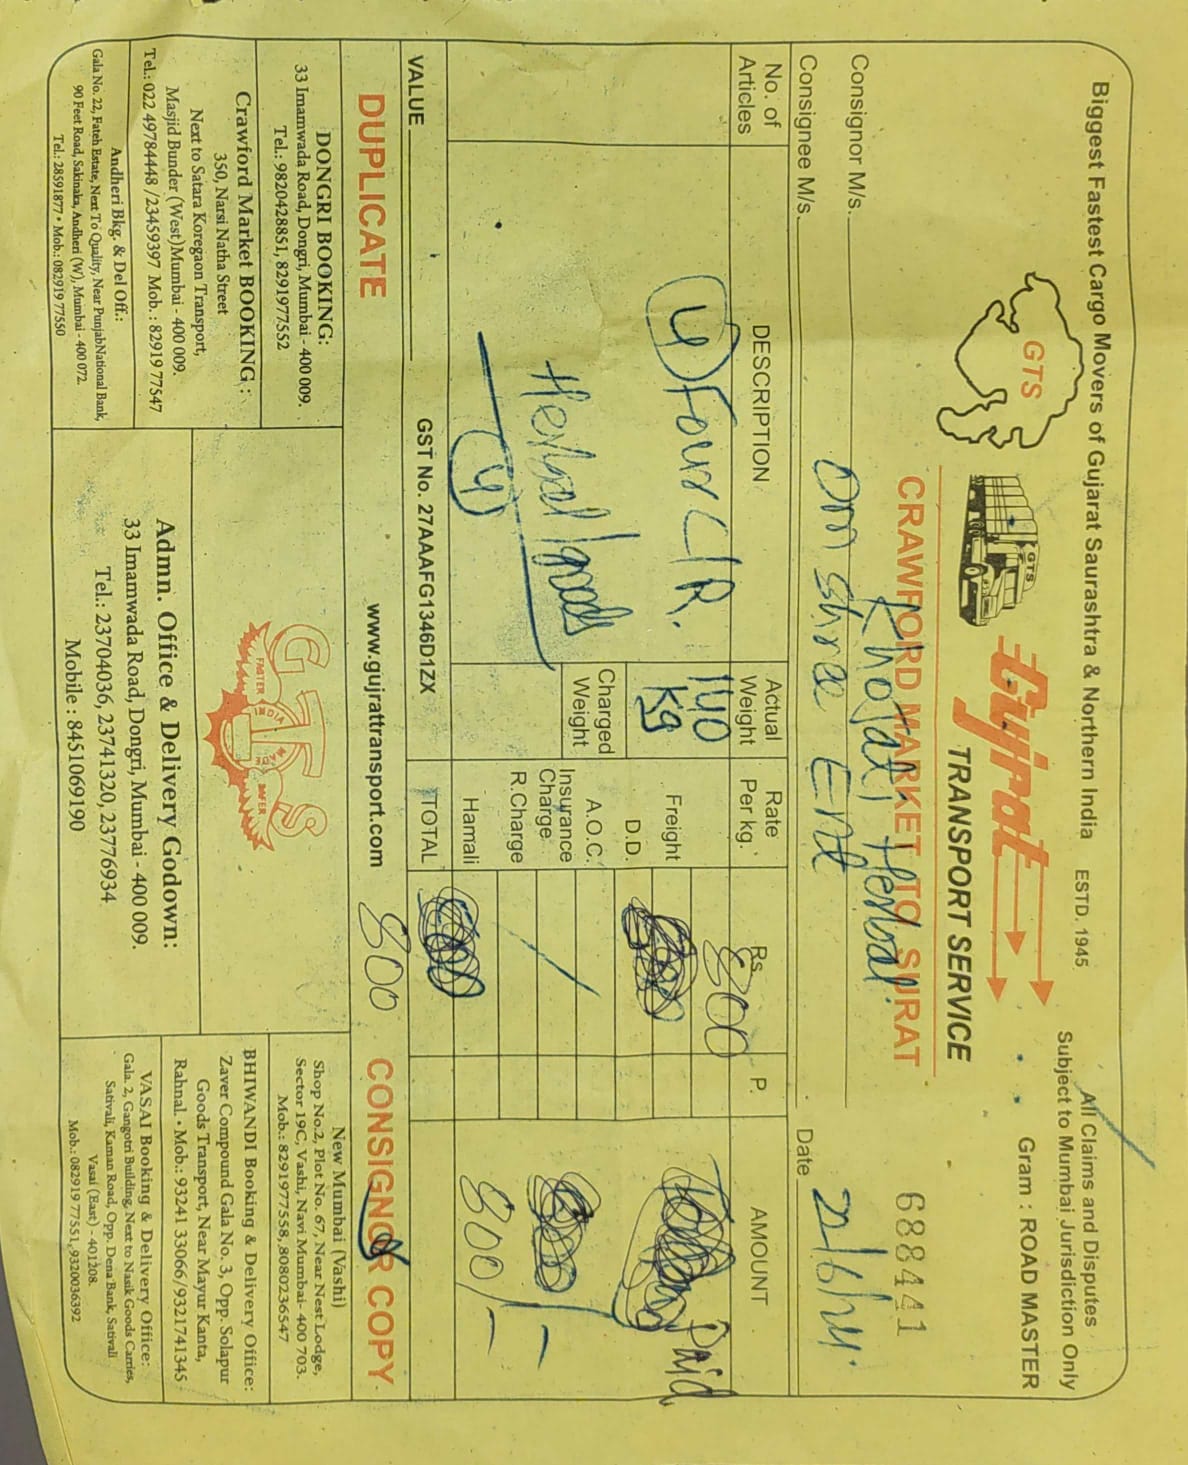 Biggest Fastest Cargo Movers of Gujarat Saurashtra & Northern India ESTD. 1945
All Claims and Disputes
Subject to Mumbai Jurisdiction Only
Gram : ROAD MASTER
GTS
GTS
Gujrat
TRANSPORT SERVICE
CRAWFORD MARKET TO SURAT
688441
Consignor M/s. Khojati Herbal
Consignee M/s. Om Shree Ent
Date
No. of Articles
DESCRIPTION
Actual Weight
Rate Per kg.
Rs.
P.
AMOUNT
4 Four C/R.
Herbal goods
4
140 Kg
Charged Weight
800
Freight
D.D.
A.O.C.
Insurance Charge
R.Charge
Hamali
TOTAL
Paid
800/-
VALUE
GST No. 27AAAFG1346D1ZX
800
DUPLICATE
www.gujrattransport.com
CONSIGNOR COPY
DONGRI BOOKING:
33 Imamwada Road, Dongri, Mumbai - 400 009.
Tel.: 9820428851, 8291977552
Crawford Market BOOKING :
350, Narsi Natha Street
Next to Satara Koregaon Transport,
Masjid Bunder (West)Mumbai - 400 009.
Tel.: 022 49784448 /23459397 Mob. : 82919 77547
Andheri Bkg. & Del Off.:
Gala No. 22, Fateh Estate, Next To Quality, Near PunjabNational Bank,
90 Feet Road, Sakinaka, Andheri (W), Mumbai - 400 072.
Tel.: 28591877 • Mob.: 082919 77550
GTS
FASTER
INDIA
MADE
SAFER
Admn. Office & Delivery Godown:
33 Imamwada Road, Dongri, Mumbai - 400 009.
Tel.: 23704036, 23741320, 23776934
Mobile : 8451069190
New Mumbai (Vashi)
Shop No.2, Plot No. 67, Near Nest Lodge,
Sector 19C, Vashi, Navi Mumbai- 400 703.
Mob.: 8291977558, 8080236547
BHIWANDI Booking & Delivery Office:
Zaver Compound Gala No. 3, Opp. Solapur
Goods Transport, Near Mayur Kanta,
Rahnal. • Mob.: 93241 33066/9321741345
VASAI Booking & Delivery Office:
Gala. 2, Gangotri Building, Next to Nasik Goods Carries,
Sativali, Kaman Road, Opp. Dena Bank, Sativali
Vasai (East) - 401208.
Mob.: 082919 77551, 9320036392